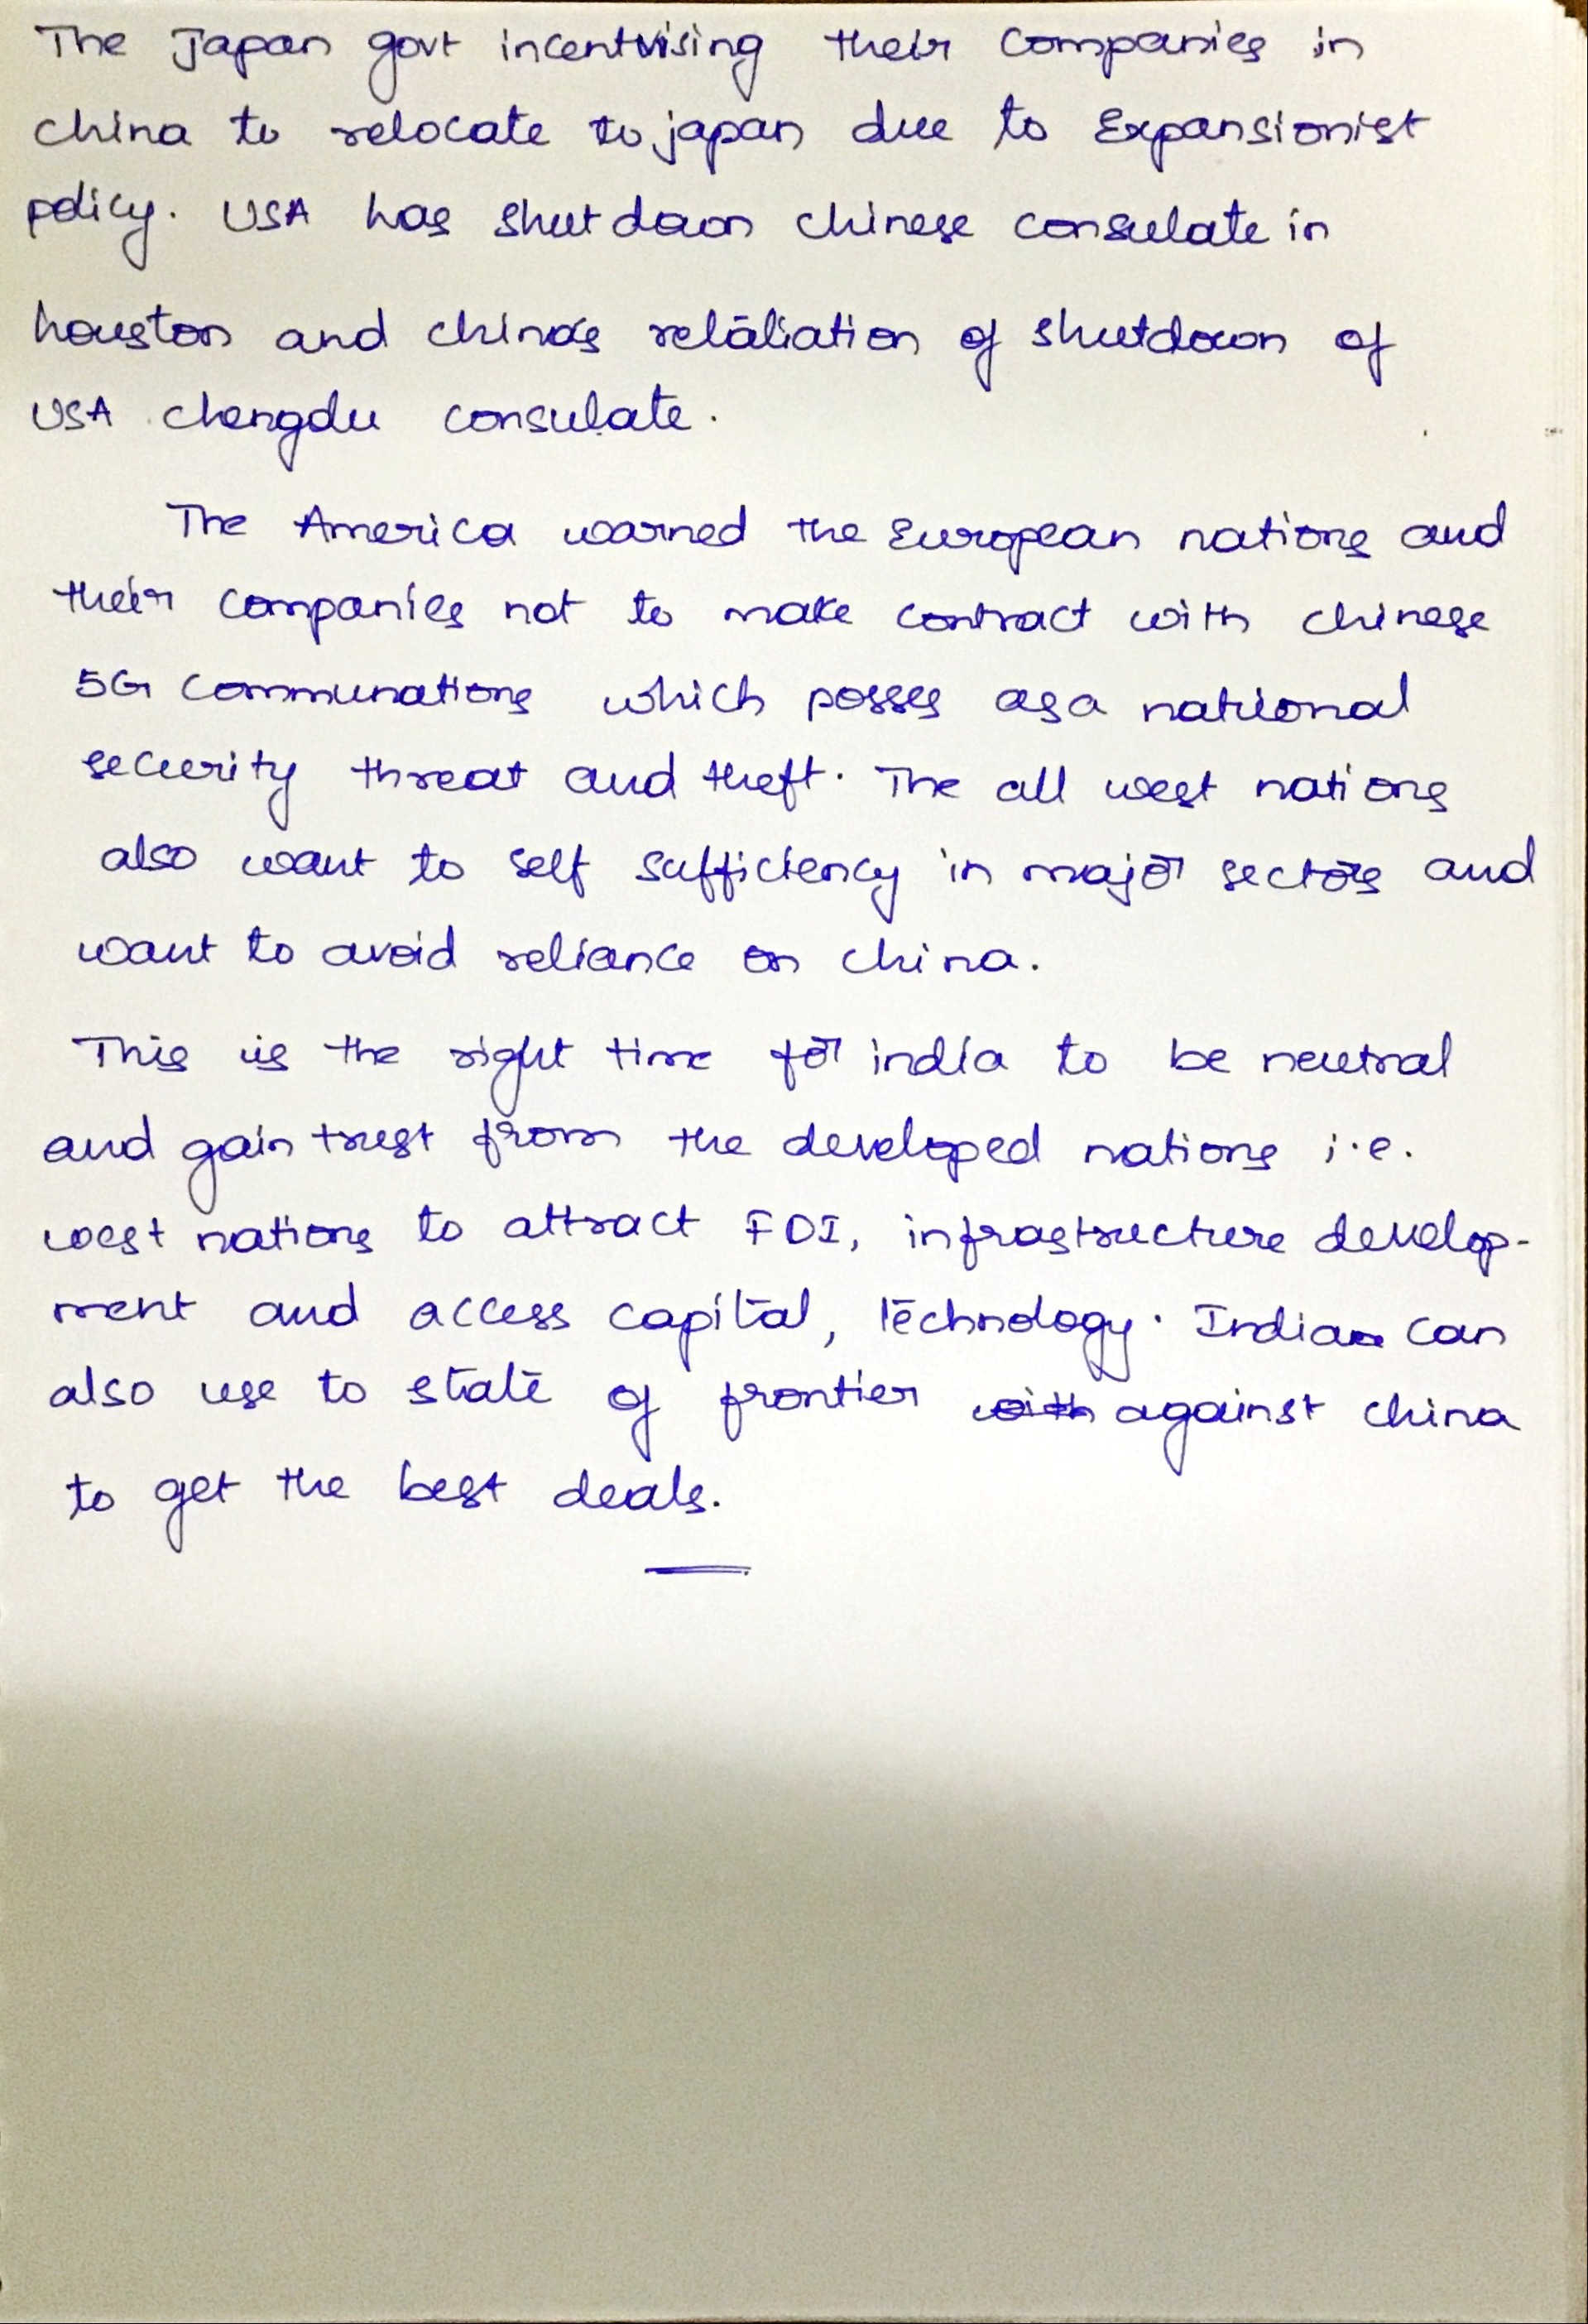 The Japan govt incentivising their companies in
china to relocate to japan due to Expansionist
policy. USA has shut down chinese consulate in
houston and china's retaliation of shutdown of
USA chengdu consulate.
The America warned the European nations and
their companies not to make contract with chinese
5G communations which posses as a national
security threat and theft. The all west nations
also want to self sufficiency in major sectors and
want to avoid reliance on china.
This is the right time for india to be neutral
and gain trust from the developed nations i.e.
west nations to attract FDI, infrastructure develop-
ment and access capital, technology. India can
also use to state of frontier with against china
to get the best deals.